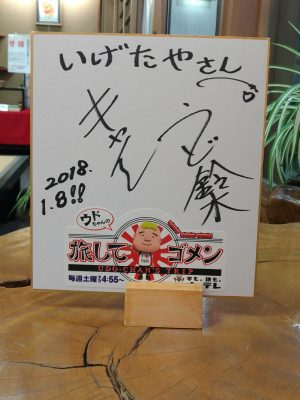 いげたやさん
キャイ〜ン
うど鈴木
2018.
1.8!!
ウドちゃんの
旅してゴメン
UDO-CHAN'S TRIP
毎週土曜 4:55~